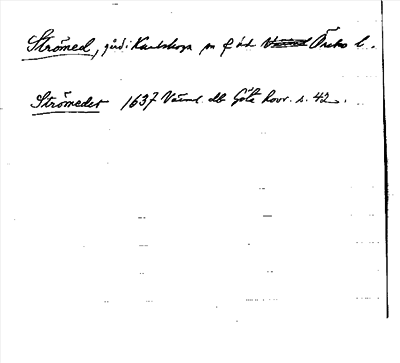 Strömed, gård i Karlskoga sn f öd Örebro l.
Strömeder 1637 Värml. älb Göta hovr. s. 42.